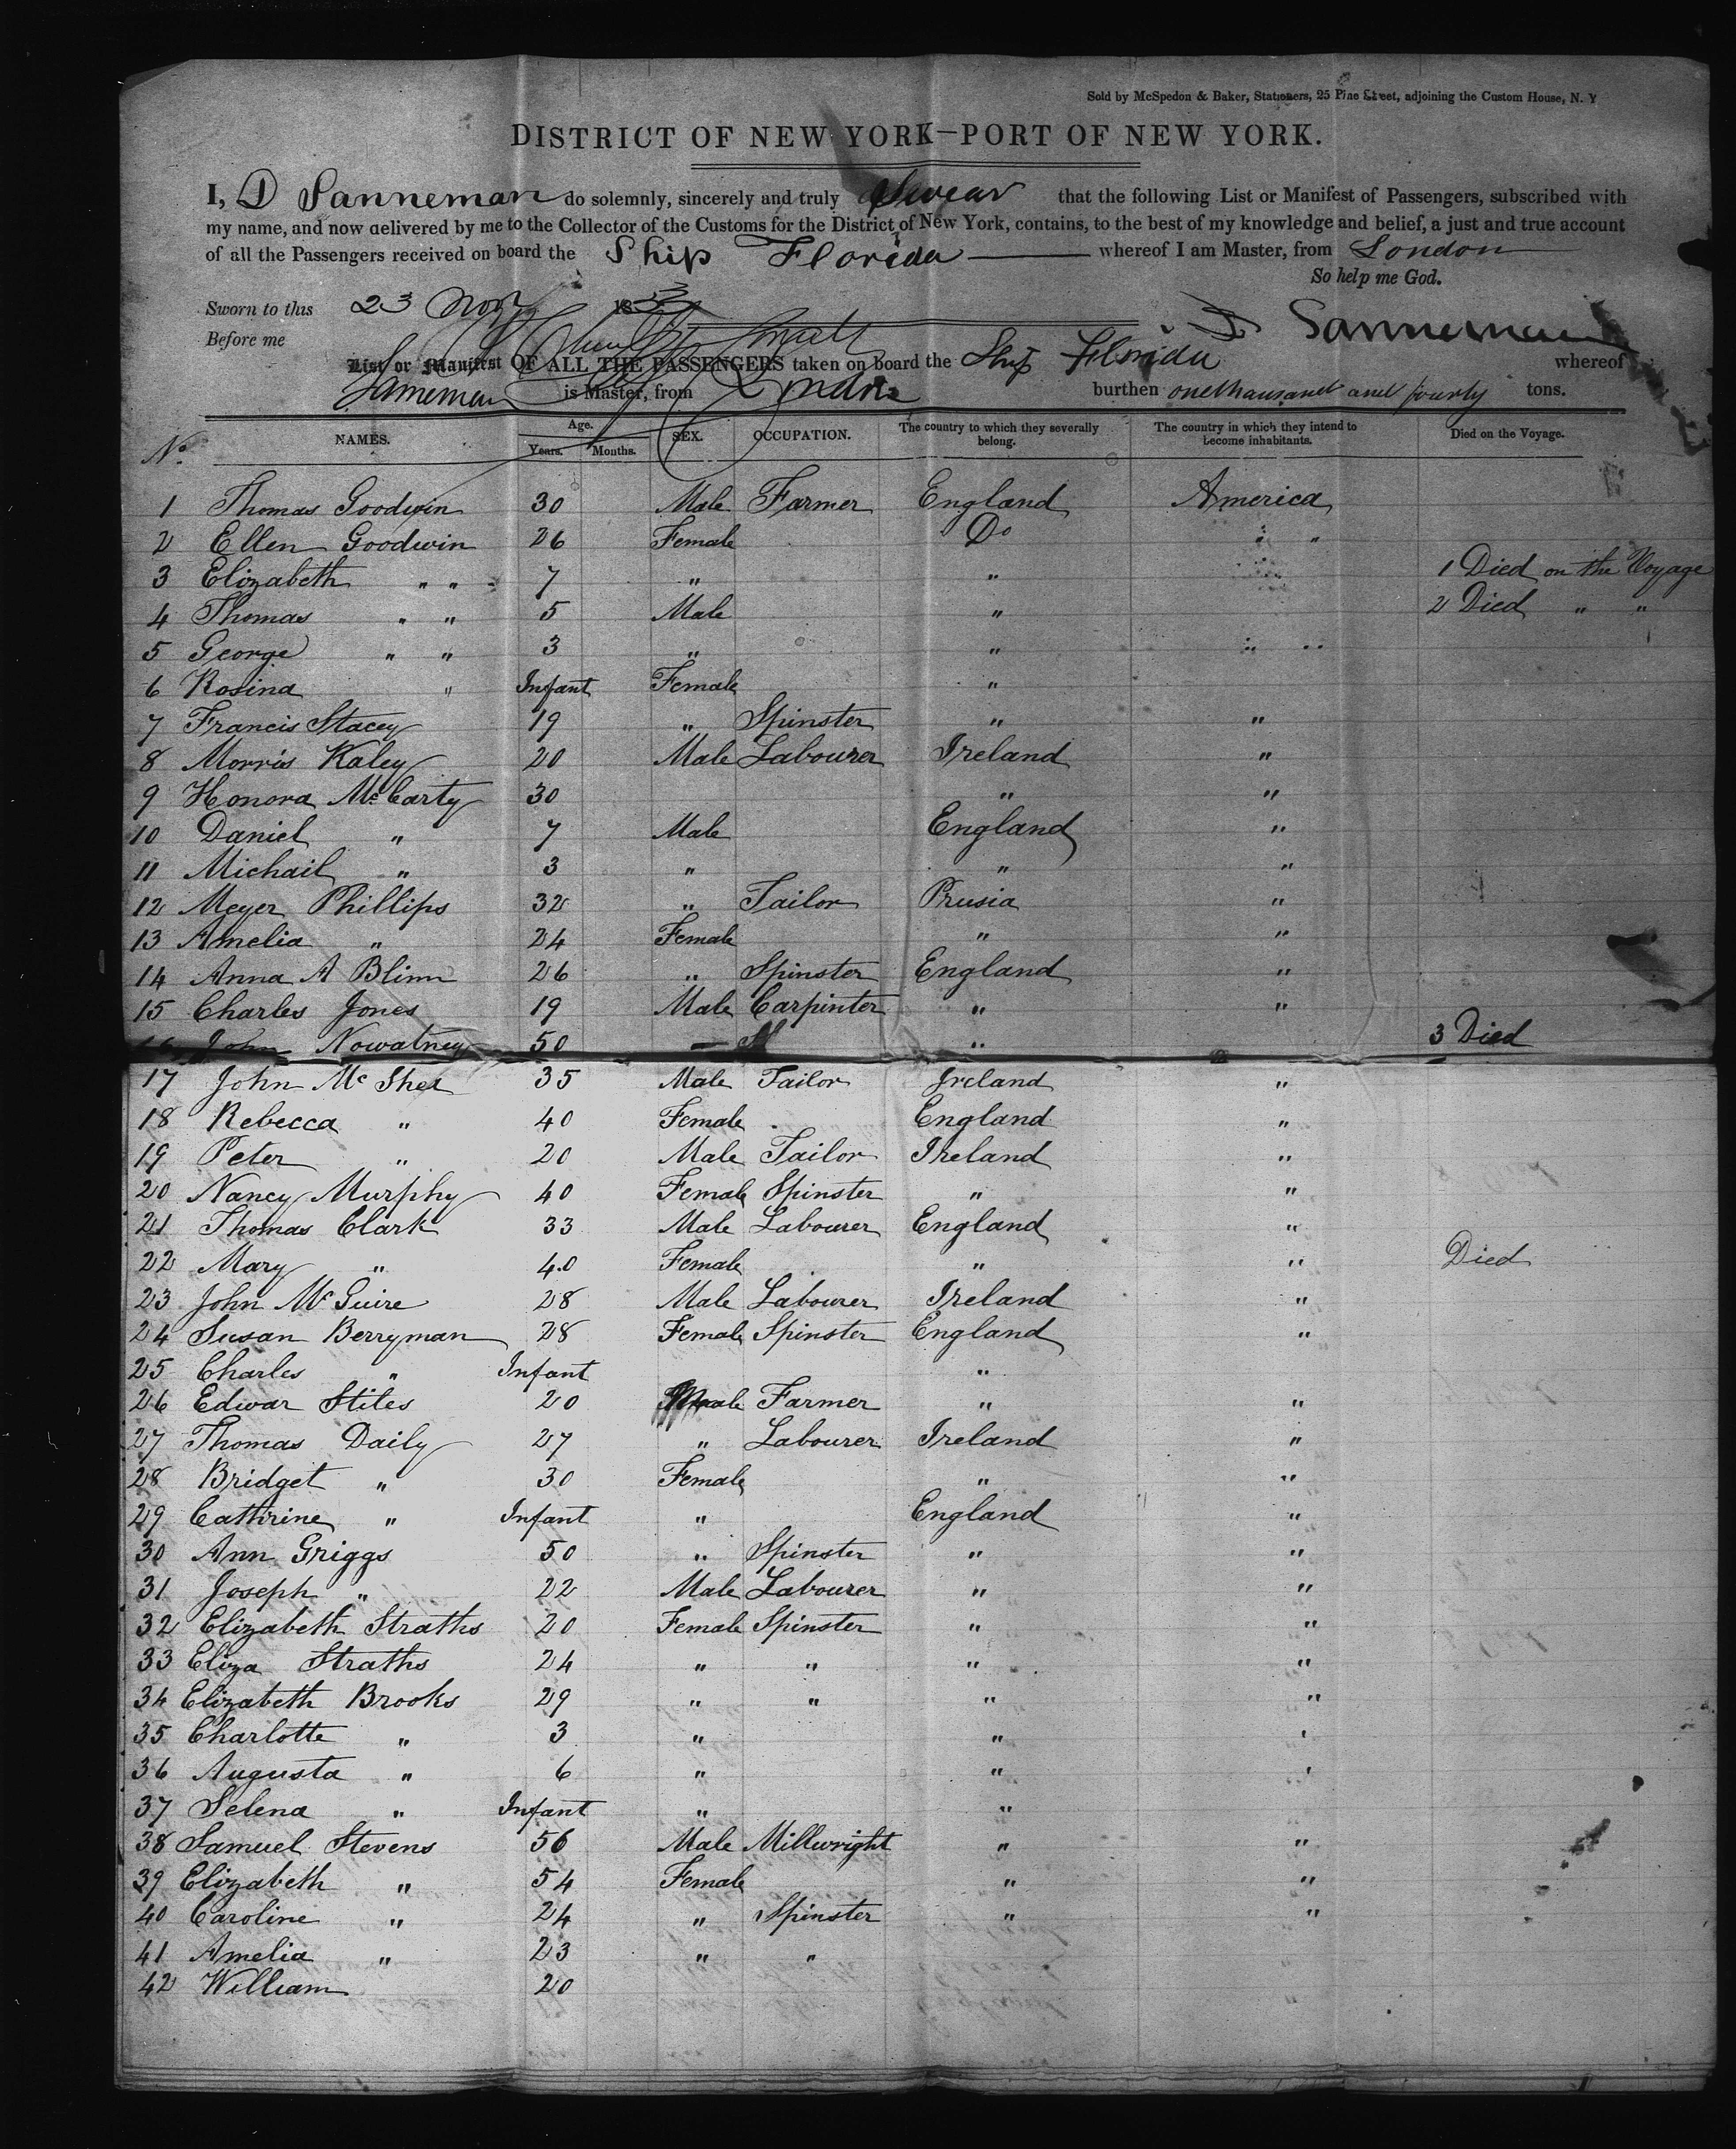 Sold by McSpedon & Baker, Stationers, 25 Pine Street, adjoining the Custom House, N. Y
DISTRICT OF NEW YORK—PORT OF NEW YORK.
I, D Sanneman do solemnly, sincerely and truly Swear that the following List or Manifest of Passengers, subscribed with
my name, and now delivered by me to the Collector of the Customs for the District of New York, contains, to the best of my knowledge and belief, a just and true account
of all the Passengers received on board the Ship Florida whereof I am Master, from London
So help me God.
Sworn to this 23 Nov 185
Before me D Sanneman
List or Manifest OF ALL THE PASSENGERS taken on board the Ship Florida whereof
Sanneman is Master, from London burthen onethousand and fourty tons.
No. NAMES. Age. Years. Months. SEX. OCCUPATION. The country to which they severally belong. The country in which they intend to become inhabitants. Died on the Voyage.
1 Thomas Goodwin 30 Male Farmer England America
2 Ellen Goodwin 26 Female Do " "
3 Elizabeth " " 7 " " 1 Died on the Voyage
4 Thomas " " 5 Male " 2 Died " "
5 George " " 3 " " " "
6 Rosina " Infant Female "
7 Francis Stacey 19 " Spinster " "
8 Morris Kaley 20 Male Labourer Ireland "
9 Honora McCarty 30 " "
10 Daniel " 7 Male England "
11 Michail " 3 " " "
12 Meyer Phillips 32 " Tailor Prusia "
13 Amelia " 24 Female " "
14 Anna A Blinn 26 " Spinster England "
15 Charles Jones 19 Male Carpinter " "
16 John Nowatney 50 " 3 Died
17 John McShee 35 Male Tailor Ireland "
18 Rebecca " 40 Female England "
19 Peter " 20 Male Tailor Ireland "
20 Nancy Murphy 40 Female Spinster " "
21 Thomas Clark 33 Male Labourer England "
22 Mary " 40 Female " " Died
23 John McGuire 28 Male Labourer Ireland "
24 Susan Berryman 28 Female Spinster England "
25 Charles " Infant "
26 Edwar Stiles 20 Male Farmer " "
27 Thomas Daily 27 " Labourer Ireland "
28 Bridget " 30 Female " "
29 Cathirine " Infant " England "
30 Ann Griggs 50 " Spinster " "
31 Joseph " 22 Male Labourer " "
32 Elizabeth Straths 20 Female Spinster " "
33 Eliza Straths 24 " " " "
34 Elizabeth Brooks 29 " " " "
35 Charlotte " 3 " " '
36 Augusta " 6 " " '
37 Selena " Infant " "
38 Samuel Stevens 56 Male Millwright " "
39 Elizabeth " 54 Female " "
40 Caroline " 24 " Spinster " "
41 Amelia " 23 " "
42 William 20